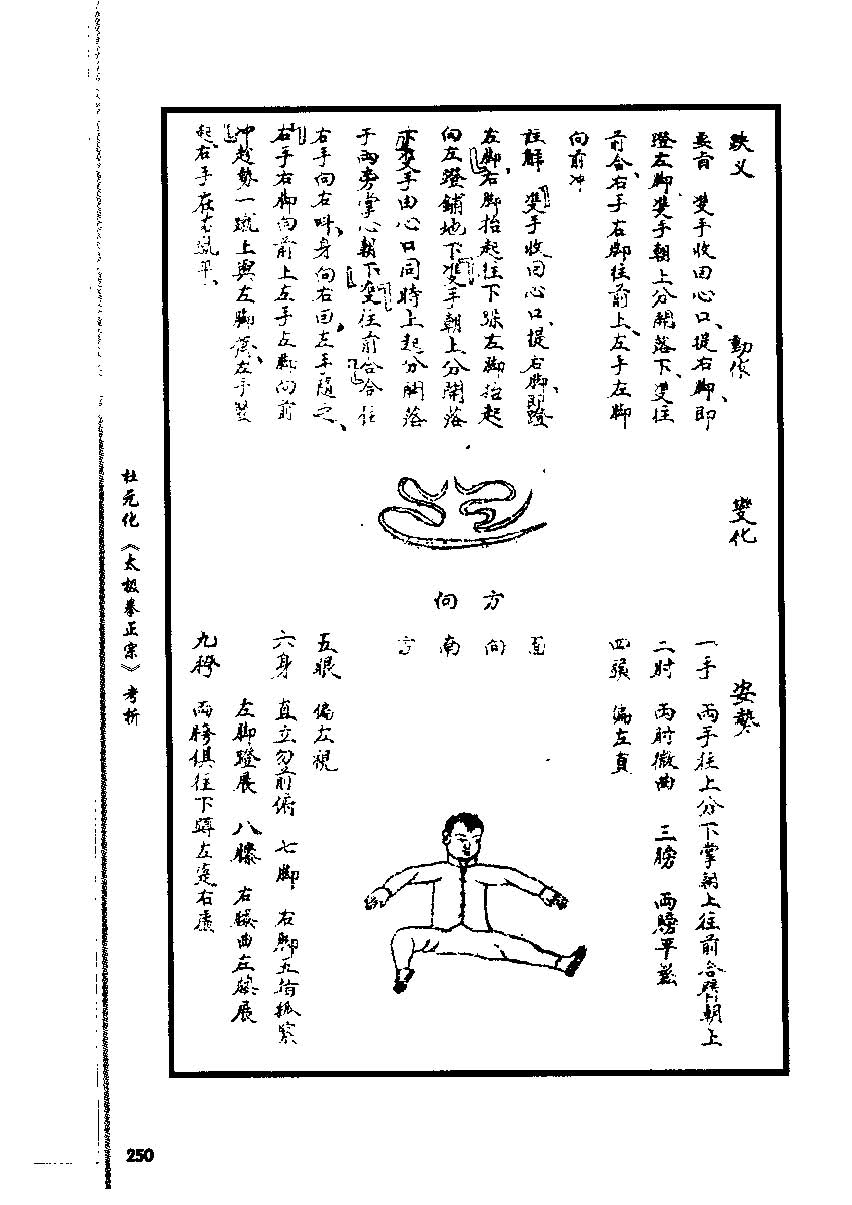 跌义 動作 變化 姿勢
要旨 雙手收回心口、提右脚、即
蹬左脚、雙手朝上分開落下、雙往
前合、右手右脚往前上、左手左脚
向前冲
註解 雙手收回心口、提右脚、即蹬
左脚、右脚抬起往下跺左脚抬起
向左蹬鋪地下、雙手朝上分開落
下雙手由心口同時上起分開落
于兩旁掌心朝下、雙往前合合住
右手向右叫、身向右回左手隨之、
右手右脚向前上左手左脚向前
冲趁勢一蹴上與左脚齊、左手竪
起、右手在右乳平、
方向
面向南方
一手 兩手往上分下掌朝上往前合臂朝上
二肘 两肘微曲 三膀 兩膀平鬆
四頭 偏左頁
五眼 偏左視
六身 直立勿前俯 七脚 右脚五指抓緊
左脚蹬展 八膝 右膝曲左膝展
九胯 兩胯俱往下蹲左寔右虛
杜元化《太极拳正宗》考析
250